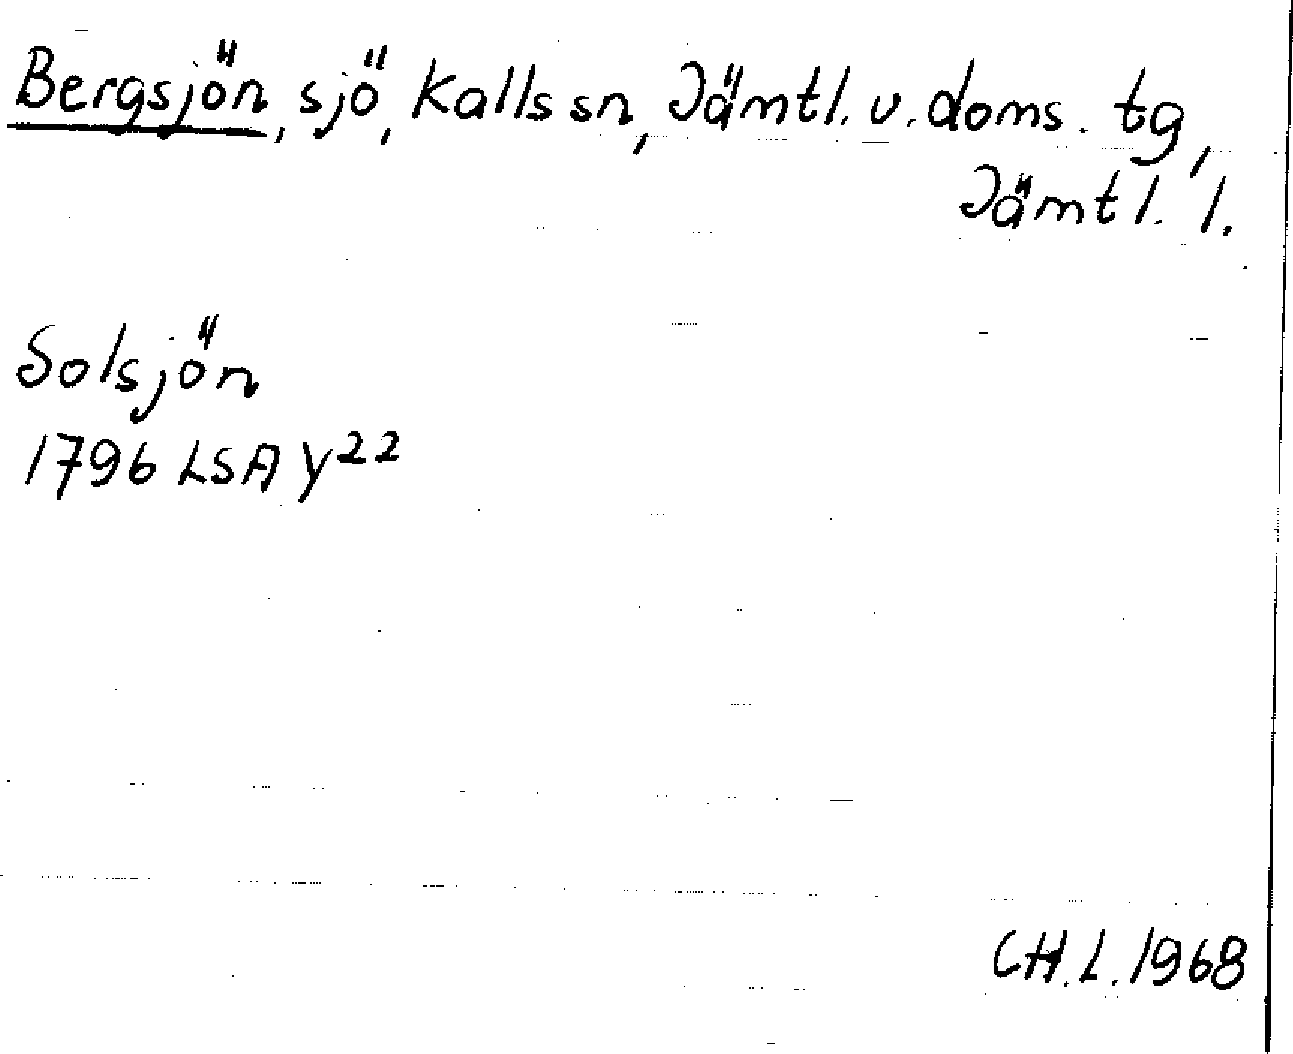 Bergsjön, sjö, Kalls sn, Jämtl. v. doms. tg,
Jämtl. l.
Solsjön
1796 LSA Y22
CH.L. 1968